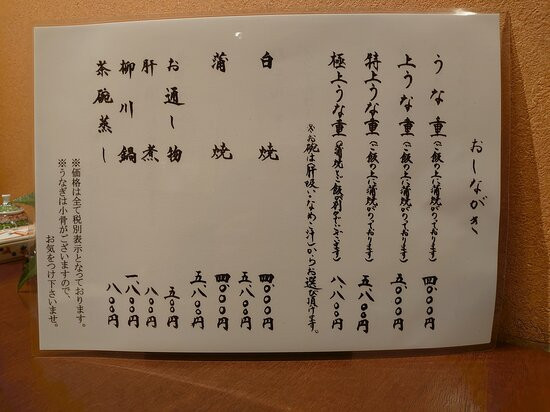 おしながき
うな重(ご飯の上に蒲焼がのっております) 四、〇〇〇円
上うな重(ご飯の上に蒲焼がのっております) 五、〇〇〇円
特上うな重(ご飯の上に蒲焼がのっております) 五、八〇〇円
極上うな重(蒲焼とご飯が別々になっております) 八、八〇〇円
※お椀は(肝吸い・なめこ汁)からお選び頂けます。
白焼 四、〇〇〇円
五、八〇〇円
蒲焼 四、〇〇〇円
五、八〇〇円
お通し物 五〇〇円
肝煮 八〇〇円
柳川鍋 一、八〇〇円
茶碗蒸し 八〇〇円
※価格は全て税別表示となっております。
※うなぎは小骨がございますので、
お気をつけ下さいませ。